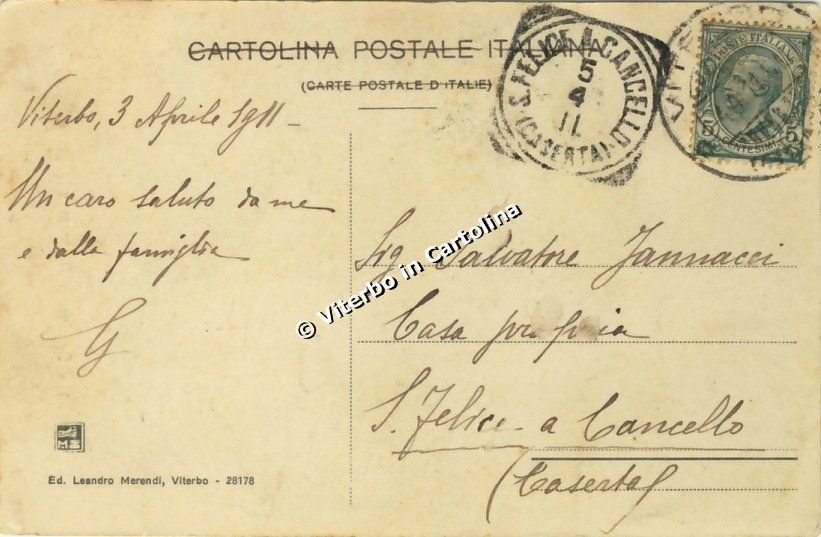 CARTOLINA POSTALE ITALIANA
(CARTE POSTALE D'ITALIE)
S. FELICE A CANCELLO
(CASERTA)
5
4
11
VITERBO
POSTE ITALIANE
5 CENTESIMI 5
Viterbo, 3 Aprile 1911
Un caro saluto da me
e dalla famiglia
G
Sig Salvatore Jannacci
Casa propria
S. Felice a Cancello
(Caserta)
© Viterbo in Cartolina
Ed. Leandro Merendi, Viterbo - 28178